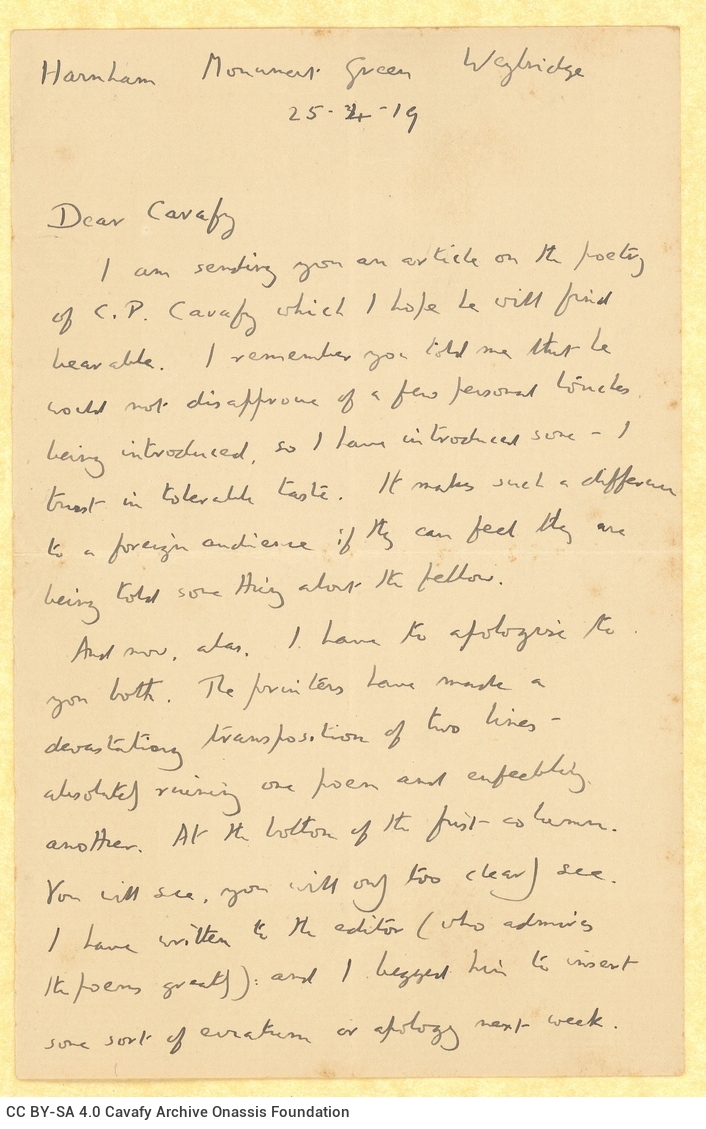 Harnham Monument Green Weybridge
25-4-19
Dear Cavafy
I am sending you an article on the poetry
of C. P. Cavafy which I hope he will find
bearable. I remember you told me that he
would not disapprove of a few personal touches
being introduced, so I have introduced some - I
trust in tolerable taste. It makes such a difference
to a foreign audience if they can feel they are
being told something about the fellow.
And now, alas, I have to apologise to
you both. The printers have made a
devastating transposition of two lines -
absolutely ruining one poem and enfeebling
another. At the bottom of the first column.
You will see, you will only too clearly see.
I have written to the editor (who admires
the poems greatly): and I begged him to insert
some sort of erratum or apology next week.
CC BY-SA 4.0 Cavafy Archive Onassis Foundation